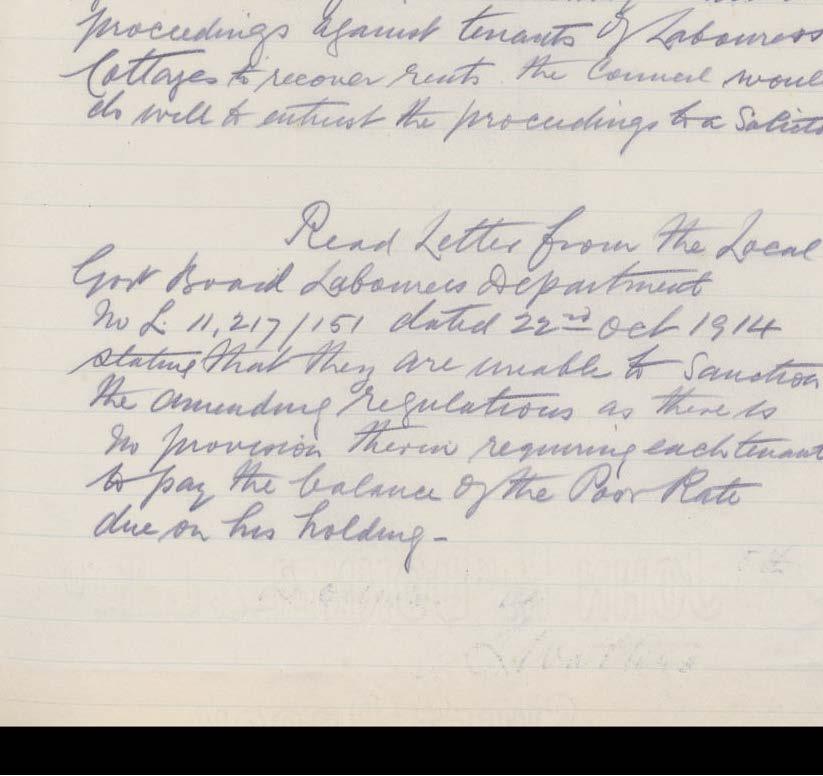 proceedings against tenants of Labourers
Cottages to recover rents the Council woul
do well to entrust the proceedings to a Solicito
Read Letter from the Local
Govt Board Labourers Department
No L. 11,217/151 dated 22nd Oct 1914
stating that they are unable to Sanction
the amending regulations as there is
no provision therin requiring each tenant
to pay the balance of the Poor Rate
due on his holding -